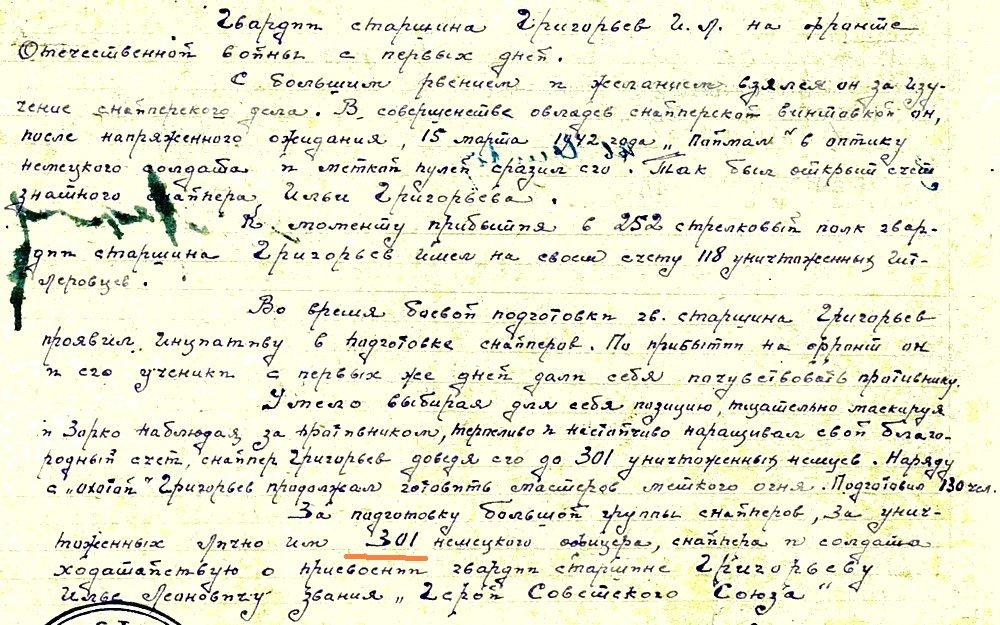 Гвардии старшина Григорьев И.Л. на фронте
Отечественной войны с первых дней.
С большим рвением и желанием взялся он за изу-
чение снайперского дела. В совершенстве овладев снайперской винтовкой он,
после напряженного ожидания, 15 марта 1942 года „Поймал" в оптику
немецкого солдата и меткой пулей сразил его. Так был открыт счет
знатного снайпера Ильи Григорьева.
К моменту прибытия в 252 стрелковый полк гвар-
дии старшина Григорьев имел на своем счету 118 уничтоженных гит-
леровцев.
Во время боевой подготовки гв. старшина Григорьев
проявил инциативу в подготовке снайперов. По прибытии на фронт он
и его ученики с первых же дней дали себя почувствовать противнику.
Умело выбирая для себя позицию, тщательно маскируя
и Зорко наблюдая за противником, терпеливо и настойчиво наращивал свой благо-
родный счет, снайпер Григорьев доведя его до 301 уничтоженных немцев. Наряду
с „охотой" Григорьев продолжал готовить мастеров меткого огня. Подготовил 130 чел.
За подготовку большой группы снайперов, за унич-
тоженных лично им 301 немецкого офицера, снайпера и солдата
ходатайствую о присвоении гвардии старшине Григорьеву
Илье Леоновичу звания „Герой Советского Союза"